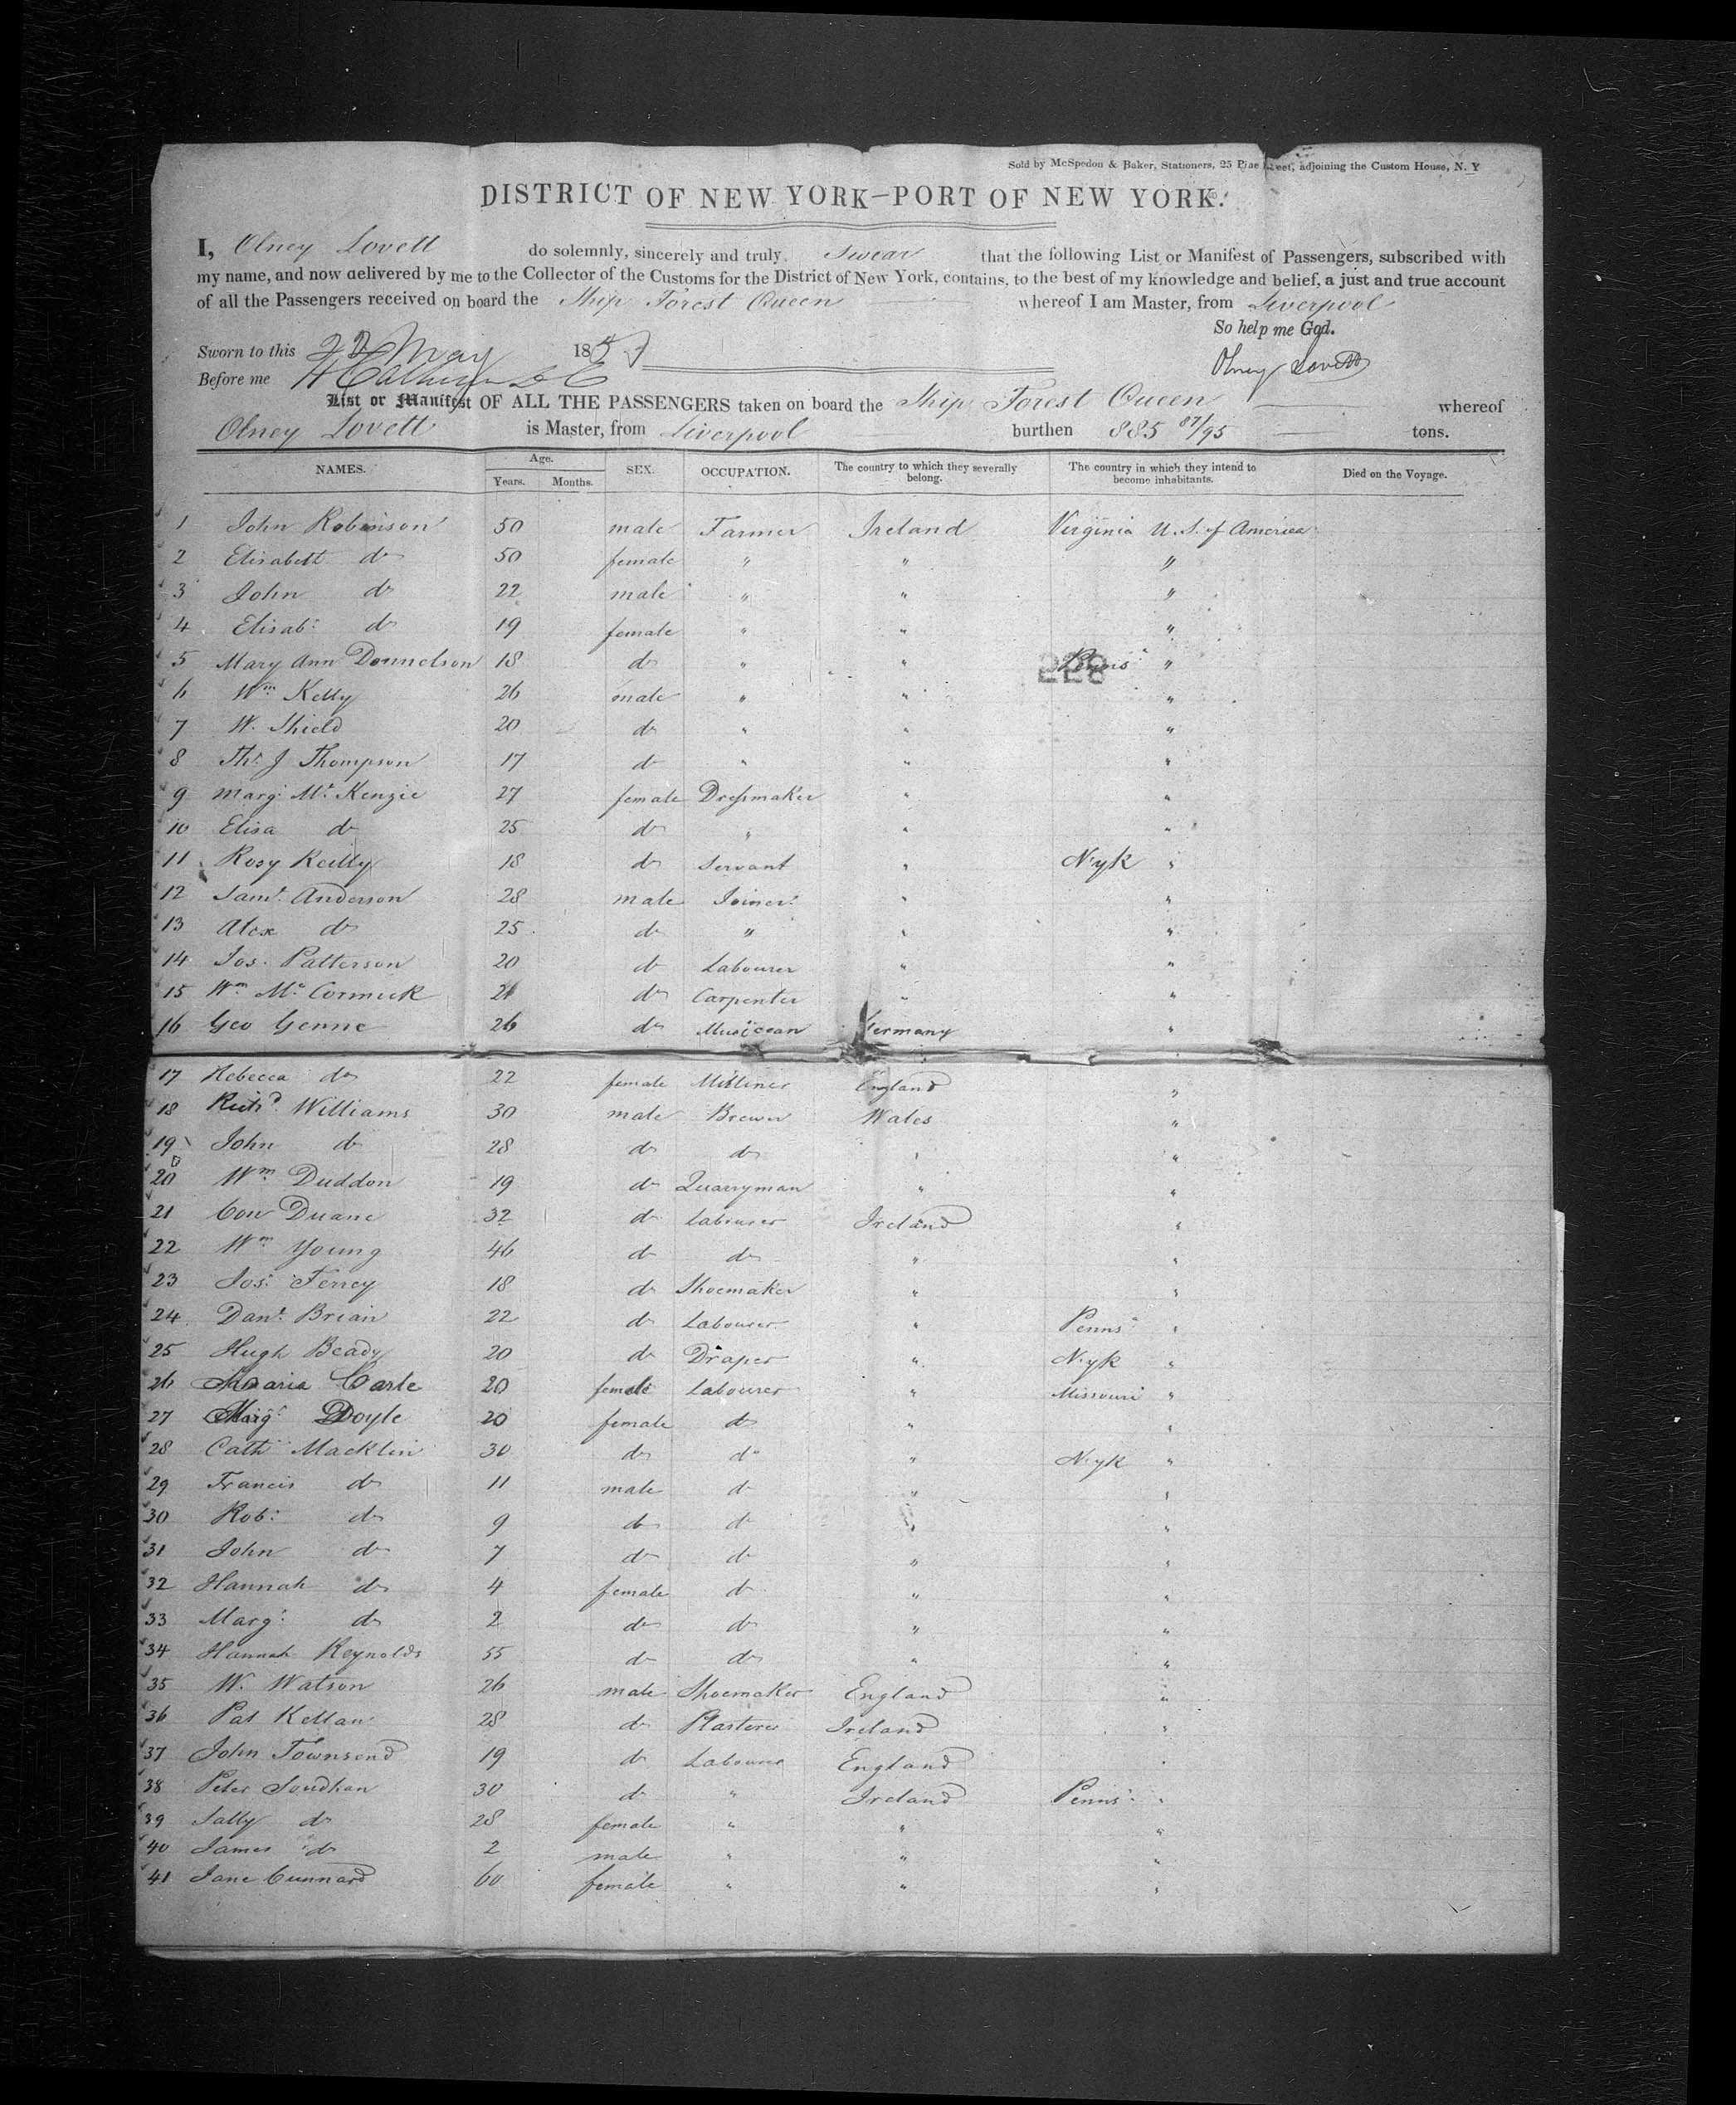 Sold by McSpedon & Baker, Stationers, 25 Pine Street, adjoining the Custom House, N. Y
DISTRICT OF NEW YORK—PORT OF NEW YORK.
I, Olney Lovett do solemnly, sincerely and truly swear that the following List or Manifest of Passengers, subscribed with
my name, and now delivered by me to the Collector of the Customs for the District of New York, contains, to the best of my knowledge and belief, a just and true account
of all the Passengers received on board the Ship Forest Queen whereof I am Master, from Liverpool
So help me God.
Sworn to this 22 May 185
Olney Lovett
Before me
List or Manifest OF ALL THE PASSENGERS taken on board the Ship Forest Queen whereof
Olney Lovett is Master, from Liverpool burthen 885 87/95 tons.
NAMES. Age. Years. Months. SEX. OCCUPATION. The country to which they severally belong. The country in which they intend to become inhabitants. Died on the Voyage.
1 John Robinson 50 male Farmer Ireland Virginia U. S. of America
2 Elisabett do 50 female " " "
3 John do 22 male " " "
4 Elisab: do 19 female " " "
5 Mary Ann Donnelson 18 do " " "
228
6 Wm Kelly 26 male " " "
7 W. Shield 20 do " " "
8 Ths J Thompson 17 do " " "
9 Marg Mc Kenzie 27 female Dressmaker " "
10 Elisa do 25 do " " "
11 Rosy Reilly 18 do Servant " N.yk "
12 Saml Anderson 28 male Joiner " "
13 Alex do 25 do " " "
14 Jos. Patterson 20 do Labourer " "
15 Wm Mc Cormick 21 do Carpenter " "
16 Geo Genne 26 do Musicean Germany "
17 Rebecca do 22 female Milliner England "
18 Richd Williams 30 male Brewer Wales "
19 John do 28 do do " "
20 Wm Duddon 19 do Quarryman " "
21 Con Duane 32 do Labourer Ireland "
22 Wm Young 46 do do " "
23 Jos: Ferrey 18 do Shoemaker " "
24 Danl Brian 22 do Labourer " Penns: "
25 Hugh Beady 20 do Draper " N.yk "
26 Maria Carle 20 female Labourer " Missouri "
27 Marg: Doyle 20 female do " "
28 Cath Macklin 30 do do " N.yk "
29 Francis do 11 male do " "
30 Rob: do 9 do do " "
31 John do 7 do do " "
32 Hannah do 4 female do " "
33 Marg: do 2 do do " "
34 Hannah Reynolds 55 do do " "
35 W. Watson 26 male Shoemaker England "
36 Pat Kellan 28 do Plasterer Ireland "
37 John Townsend 19 do Labourer England "
38 Peter Soudhan 30 do " Ireland Penns: "
39 Sally do 28 female " " "
40 James do 2 male " " "
41 Jane Cunnard 60 female " " "